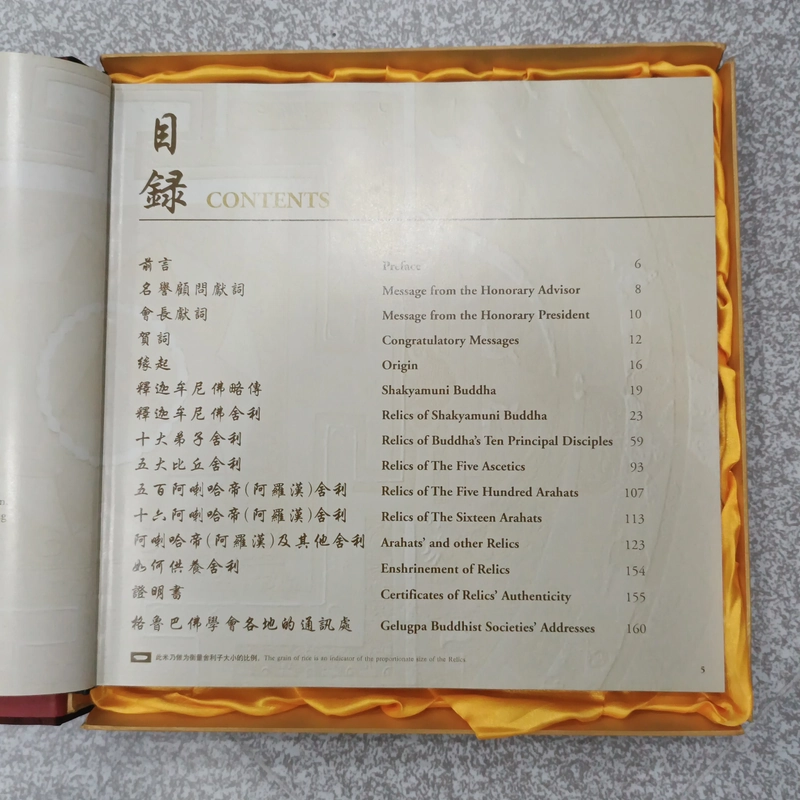 目
録 CONTENTS
前言 Preface 6
名譽顧問獻詞 Message from the Honorary Advisor 8
會長獻詞 Message from the Honorary President 10
賀詞 Congratulatory Messages 12
緣起 Origin 16
釋迦牟尼佛略傳 Shakyamuni Buddha 19
釋迦牟尼佛舍利 Relics of Shakyamuni Buddha 23
十大弟子舍利 Relics of Buddha's Ten Principal Disciples 59
五大比丘舍利 Relics of The Five Ascetics 93
五百阿喇哈帝(阿羅漢)舍利 Relics of The Five Hundred Arahats 107
十六阿喇哈帝(阿羅漢)舍利 Relics of The Sixteen Arahats 113
阿喇哈帝(阿羅漢)及其他舍利 Arahats' and other Relics 123
如何供養舍利 Enshrinement of Relics 154
證明書 Certificates of Relics' Authenticity 155
格魯巴佛學會各地的通訊處 Gelugpa Buddhist Societies' Addresses 160
此米乃做为衡量舍利子大小的比例. The grain of rice is an indicator of the proportionate size of the Relics
5